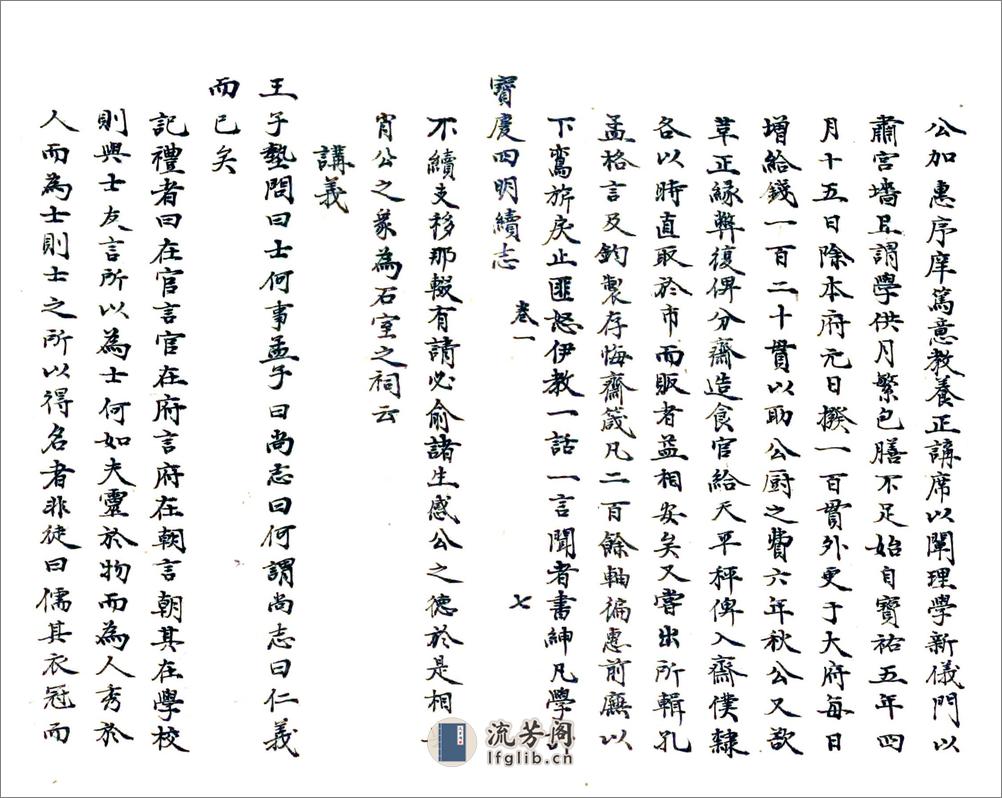 公加惠序庠篤意教養正講席以闡理學新儀門以
肅宮墻且謂學供月繁包膳不足始自寶祐五年四
月十五日除本府元日撥一百貫外更于大府每日
增給錢一百二十貫以助公厨之費六年秋公又欲
革正緣弊復俾分齋造食官給天平秤俾入齋僕隸
各以時直取於市而販者益相安矣又嘗出所輯孔
孟格言及鈞製存悔齋箴凡二百餘軸徧惠前廡以
下鸞旂戾止匪怒伊教一話一言聞者書紳凡學
寶慶四明續志 卷一 七
不續支移那輟有請必俞諸生感公之德於是相
肖公之象為石室之祠云
講義
王子墊問曰士何事孟子曰尚志曰何謂尚志曰仁義
而已矣
記禮者曰在官言官在府言府在朝言朝其在學校
則與士友言所以為士何如夫靈於物而為人秀於
人而為士則士之所以得名者非徒曰儒其衣冠而
流芳阁
lfglib.cn